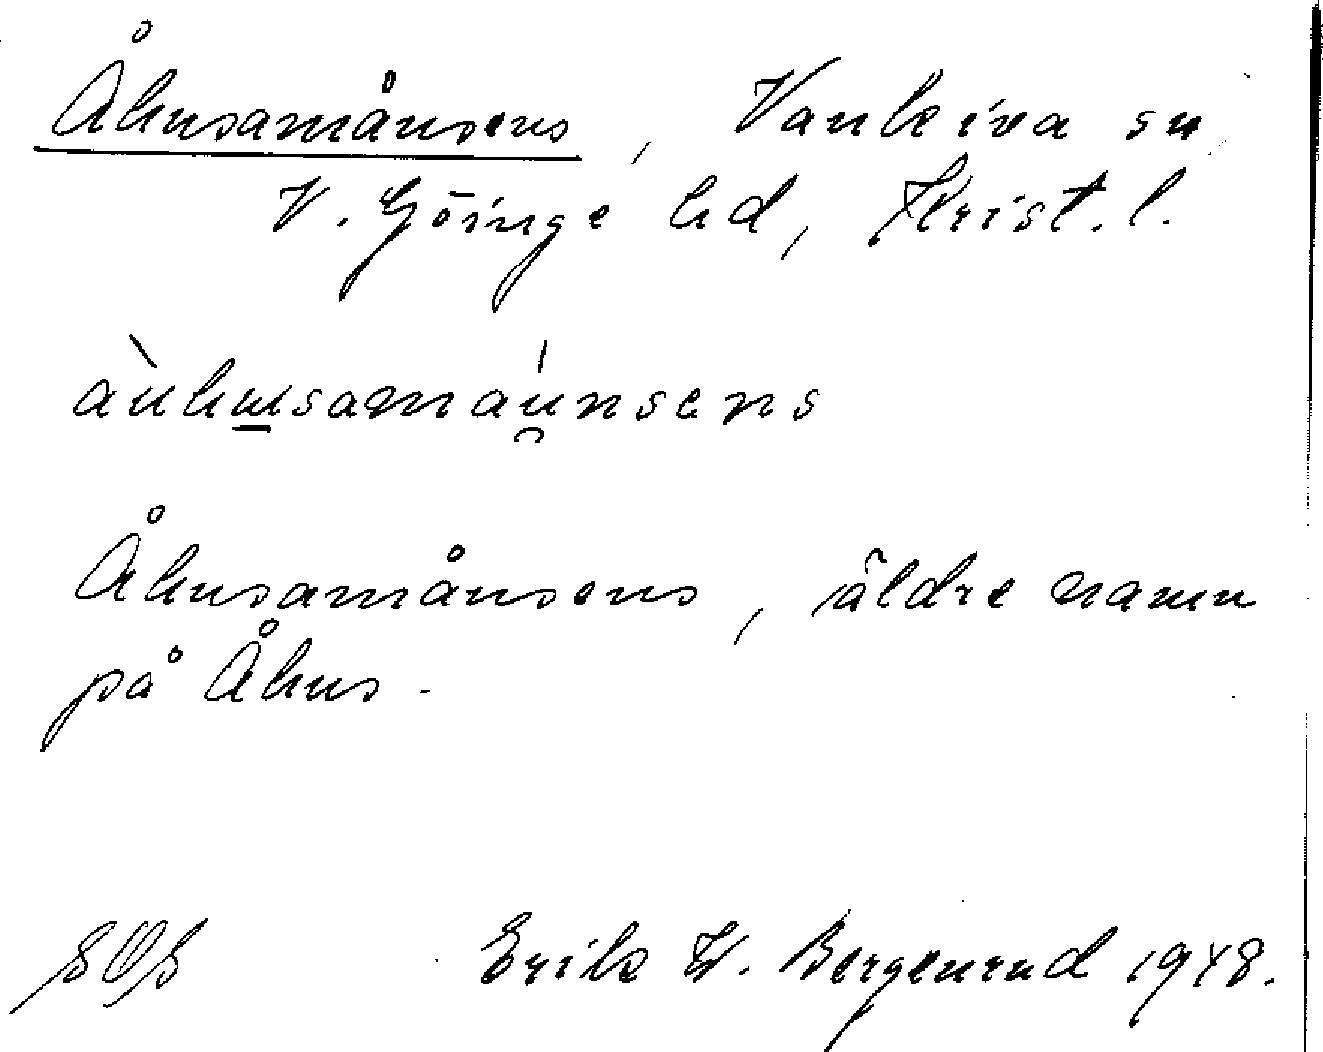 Åhusamånsens, Vankiva sn,
V. Göinge hd, Krist. l.
Åhusamånsens, äldre namn
på Åhus.
Erik W. Bergenrud 1948.